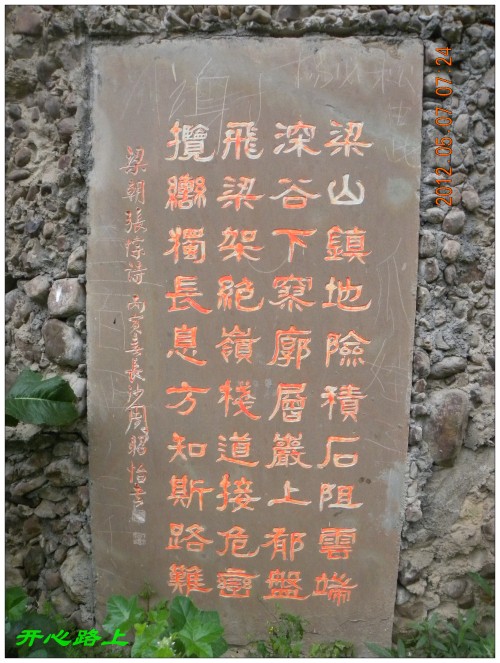 梁山鎮地險積石阻雲端
深谷下寥廓層巖上郁盤
飛梁架絶嶺棧道接危巒
攬轡獨長息方知斯路難
梁朝張悰詩 丙寅春長沙周昭怡書
2012 05 07 07 24
开心路上